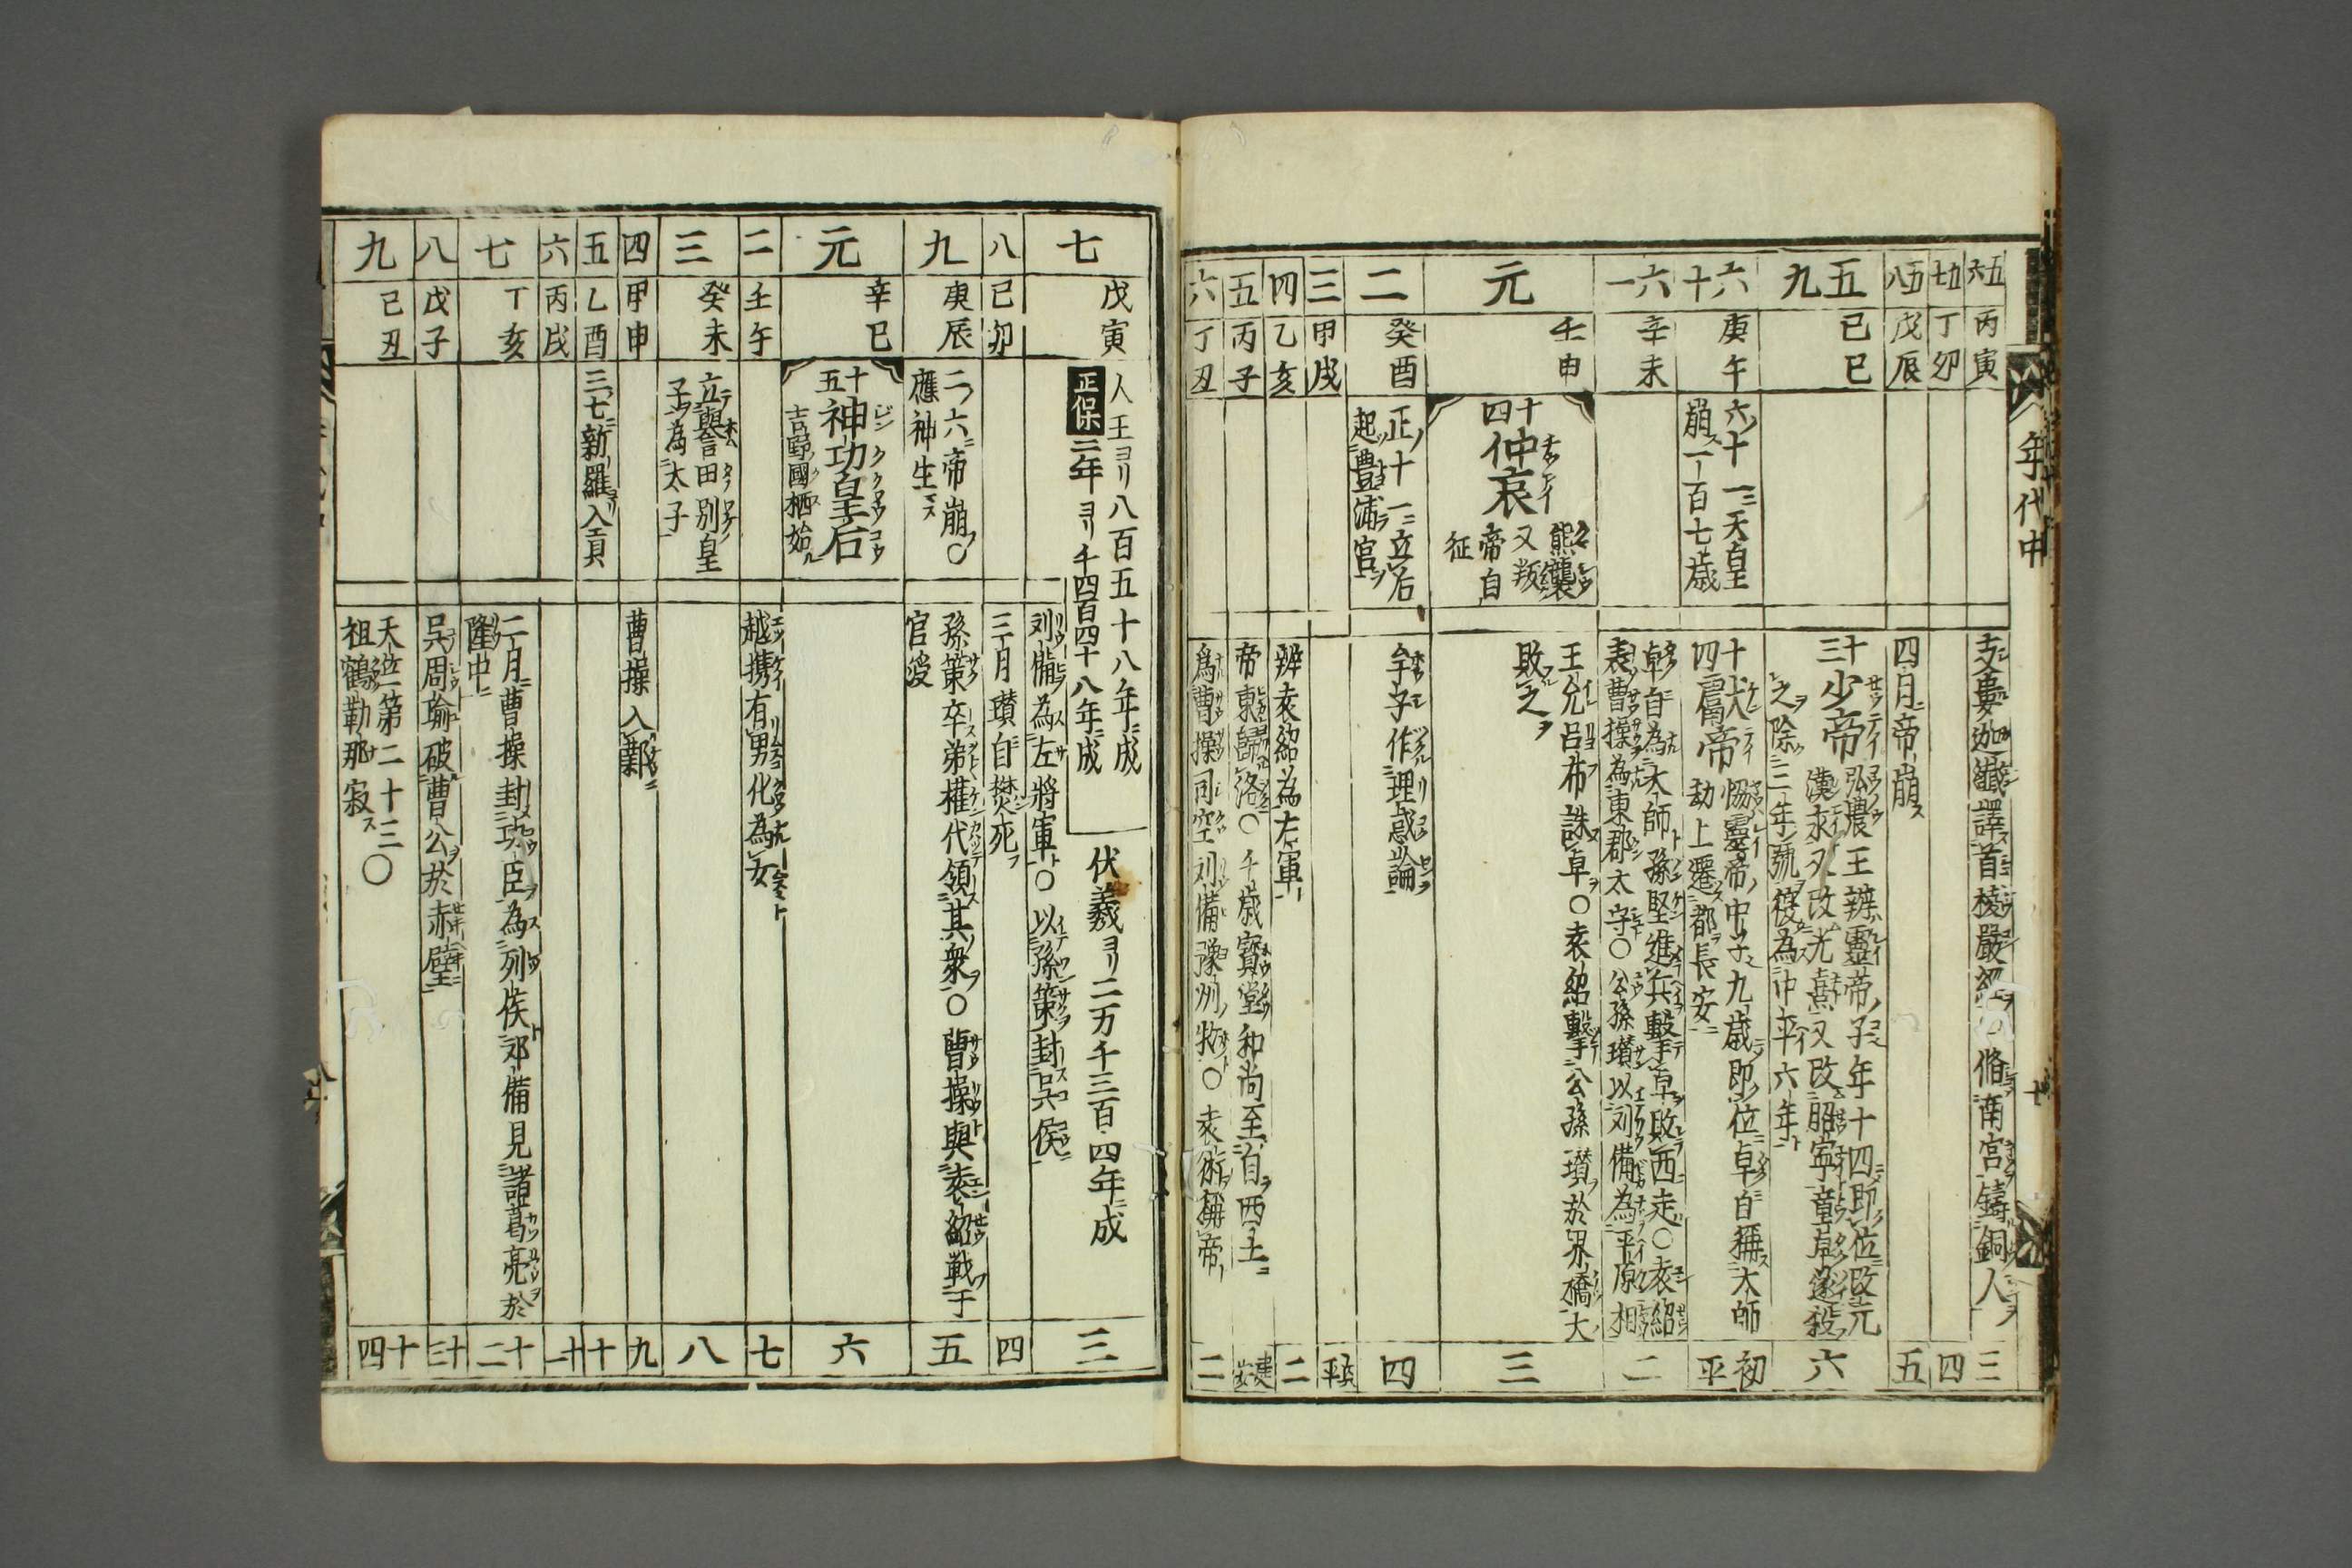 年代中
五六
丙寅
支婁迦讖譯首楞嚴經○脩南宮鑄銅人
三
五七
丁卯
四
五八
戊辰
四月帝崩
五
五九
己巳
十三
少帝
弘農王辨靈帝子年十四即位改元
漢永又改光熹又改昭寧董卓遂殺
之除三年號復為中平六年
六
六十
庚午
六十一天皇
崩一百七歳
十四
献帝
協靈帝中子九歳即位卓自稱太師
劫上遷都長安
初平
六一
辛未
卓自為大師孫堅進兵擊卓敗西走○袁紹
表曹操為東郡太守○公孫瓚以刘備為平原相
二
元
壬申
十四
仲哀
熊襲
又叛
帝自
征
王允呂布誅卓○袁紹擊公孫瓚於界橋大
敗之
三
二
癸酉
正十一立后
起豊浦宮
牟子作理惑論
四
三
甲戌
興平
四
乙亥
辨袁紹為右軍
二
五
丙子
帝東歸洛○千歳寶堂和尚至自西土
建安
六
丁丑
爲曹操司空刘備豫州牧○袁術稱帝
二
七
戊寅
人王ヨリ八百五十八年成
正保三年ヨリ千四百四十八年成
伏羲ヨリ二万千三百四年成
刘備為左將軍○以孫策封呉侯
三
八
己卯
三月瓚自焚死
四
九
庚辰
二六帝崩○
應神生
孫策卒弟權代領其衆○曹操與袁紹戰于
官渡
五
元
辛巳
十五
神功皇后
吉野國栖始
六
二
壬午
越携有男化為女
七
三
癸未
立譽田別皇
子為太子
八
四
甲申
曹操入鄴
九
五
乙酉
三七新羅入貢
十
六
丙戌
十一
七
丁亥
二月曹操封功臣為列侯刘備見諸葛亮於
隆中
十二
八
戊子
呉周瑜破曹公於赤壁
十三
九
己丑
天竺第二十三○
祖鶴勒那寂
十四